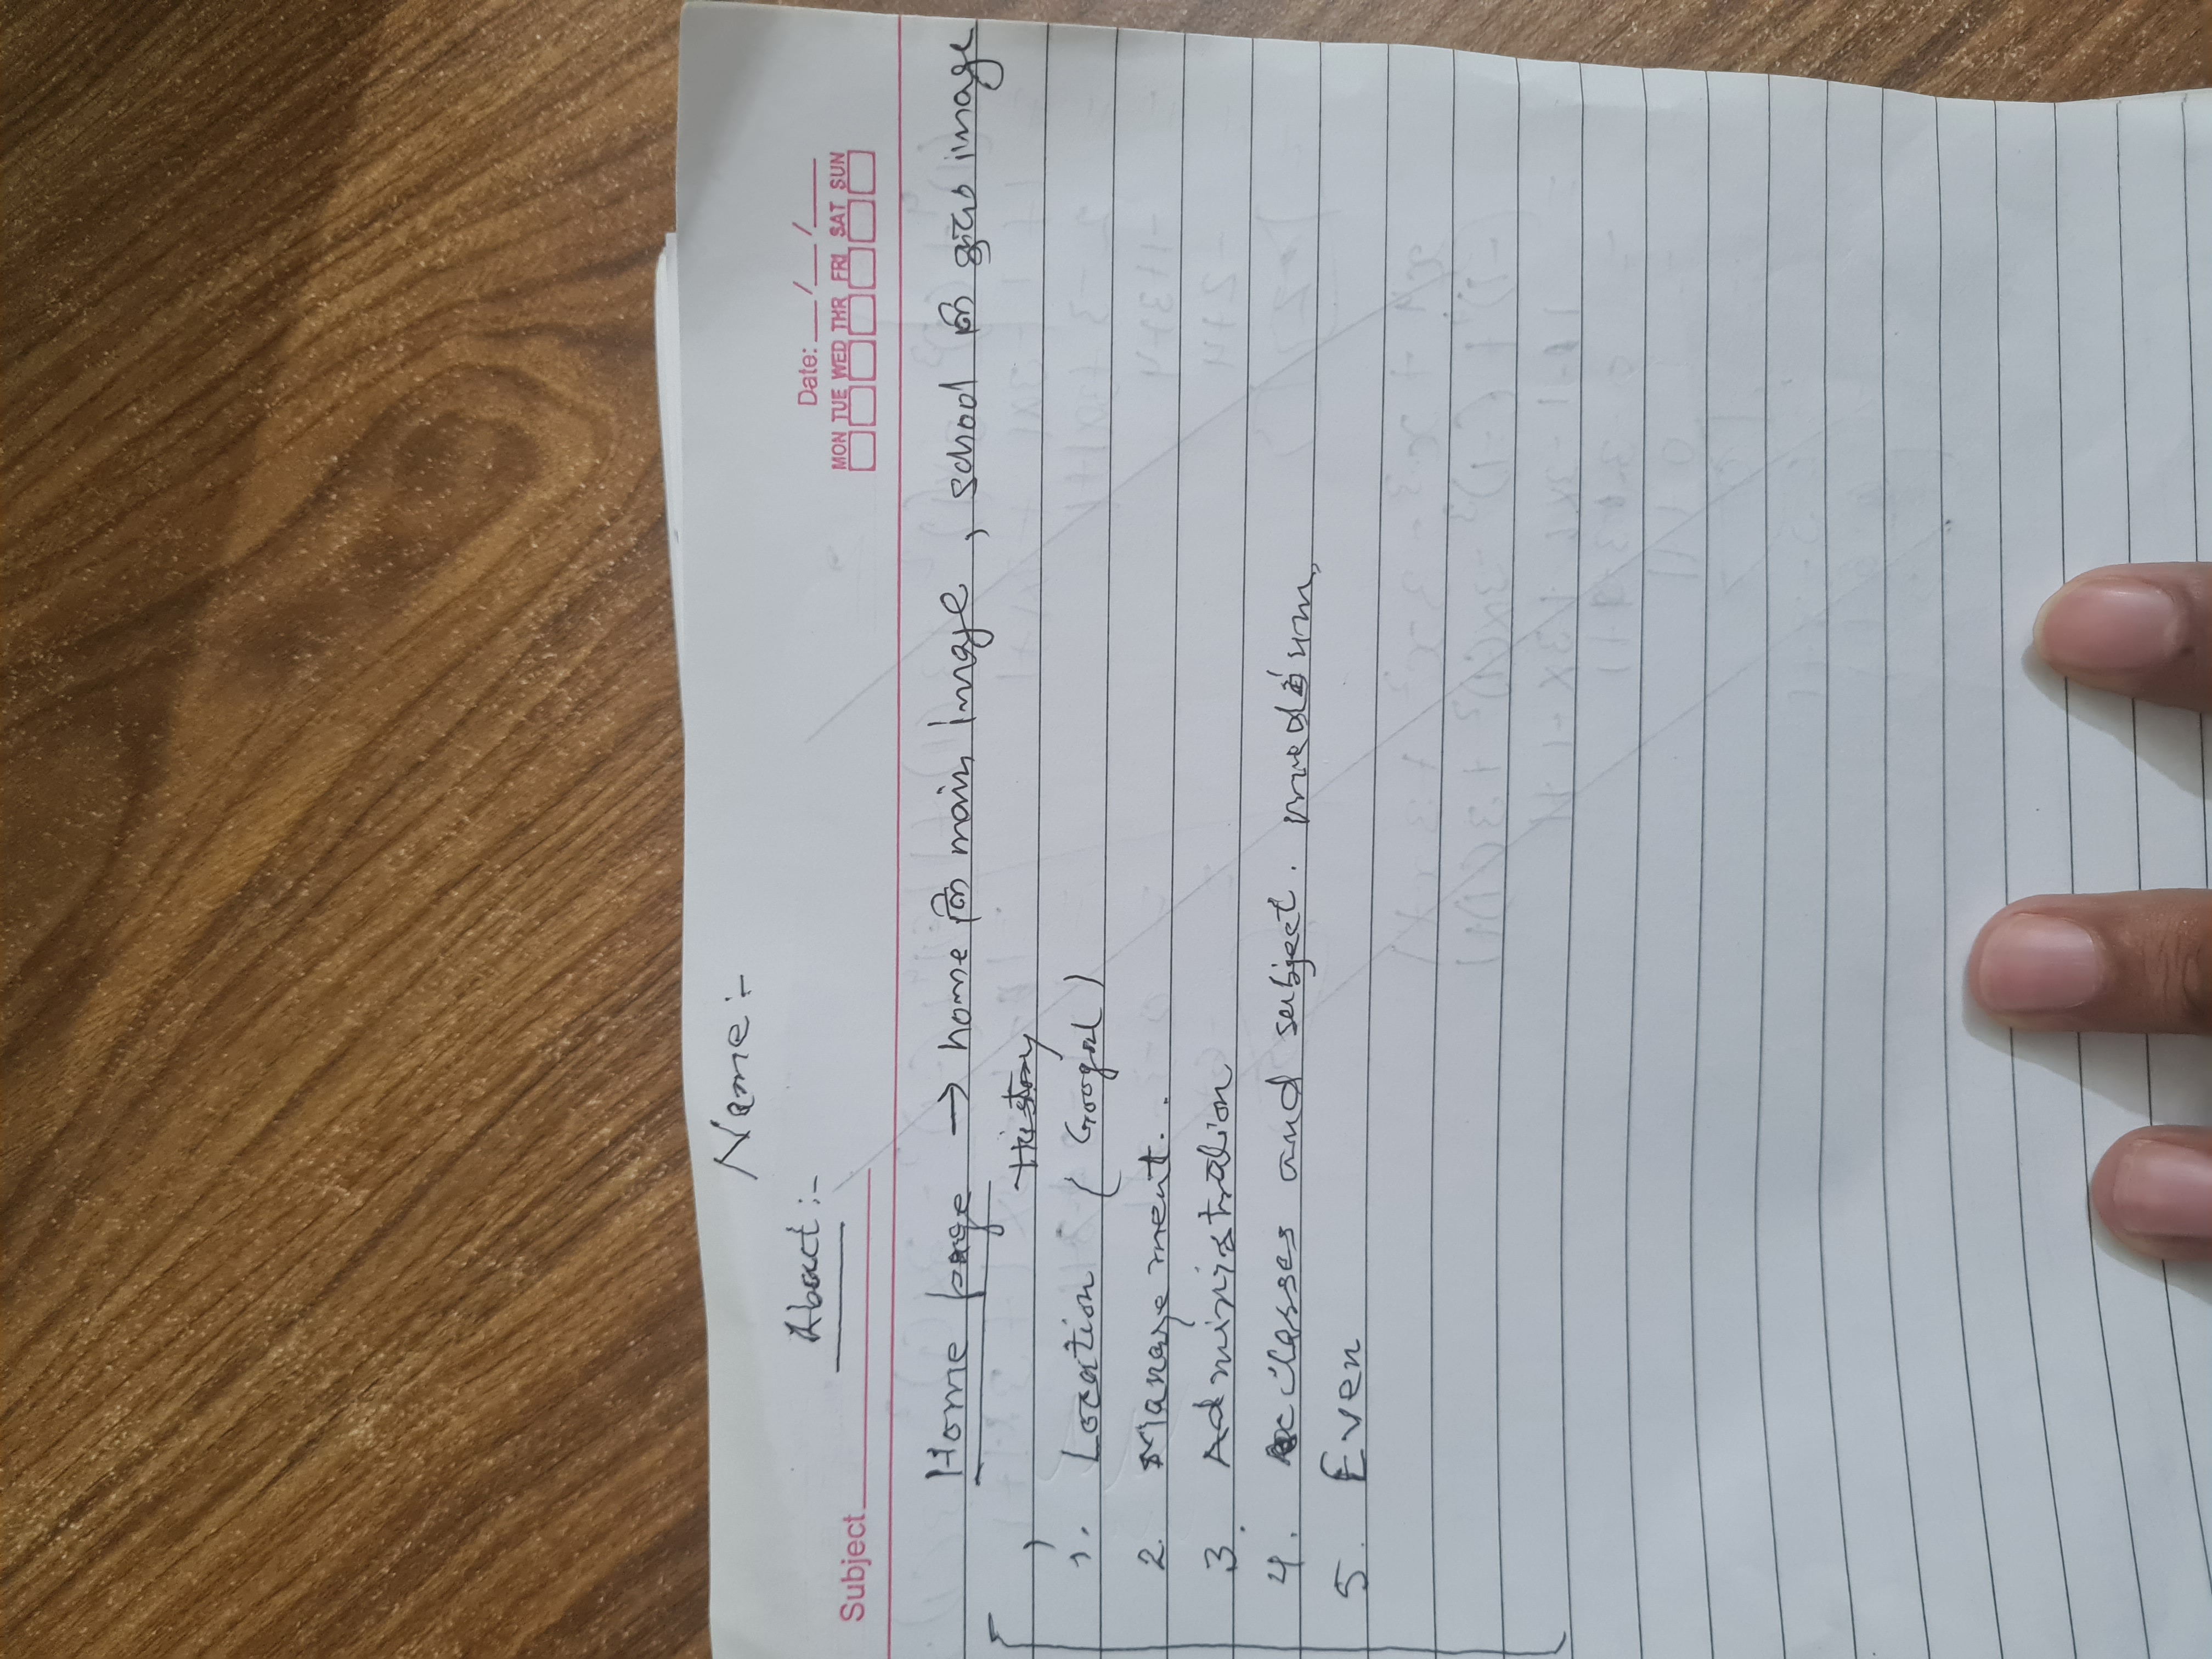 Name:-
About:-
Subject
Date: __/__/____
MON TUE WED THR FRI SAT SUN
Home page → home कि main Image, school कि image
History
1. Location (Googal)
2. Management..
3. Administration
4. classes and subject. medium,
5. Even